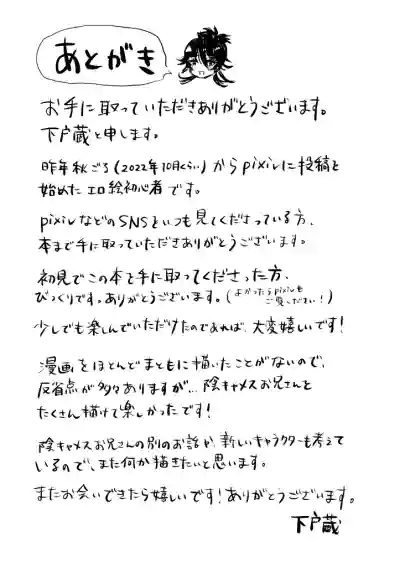 あとがき
お手に取っていただきありがとうございます。
下戸蔵と申します。
昨年秋ごろ(2022年10月くらい)からpixivに投稿を
始めたエロ絵初心者です。
pixivなどのSNSでいつも見てくださっている方、
本まで手に取っていただきありがとうございます。
初見でこの本を手に取ってくださった方、
びっくりです。ありがとうございます。(よかったらpixivも
ご覧ください!)
少しでも楽しんでいただけたのであれば、大変嬉しいです!
漫画をほとんどまともに描いたことがないので、
反省点が多々ありますが…陰キャメスお兄さんを
たくさん描けて楽しかったです!
陰キャメスお兄さんの別のお話や、新しいキャラクターも考えて
いるので、また何か描きたいと思います。
またお会いできたら嬉しいです!ありがとうございます。
下戸蔵